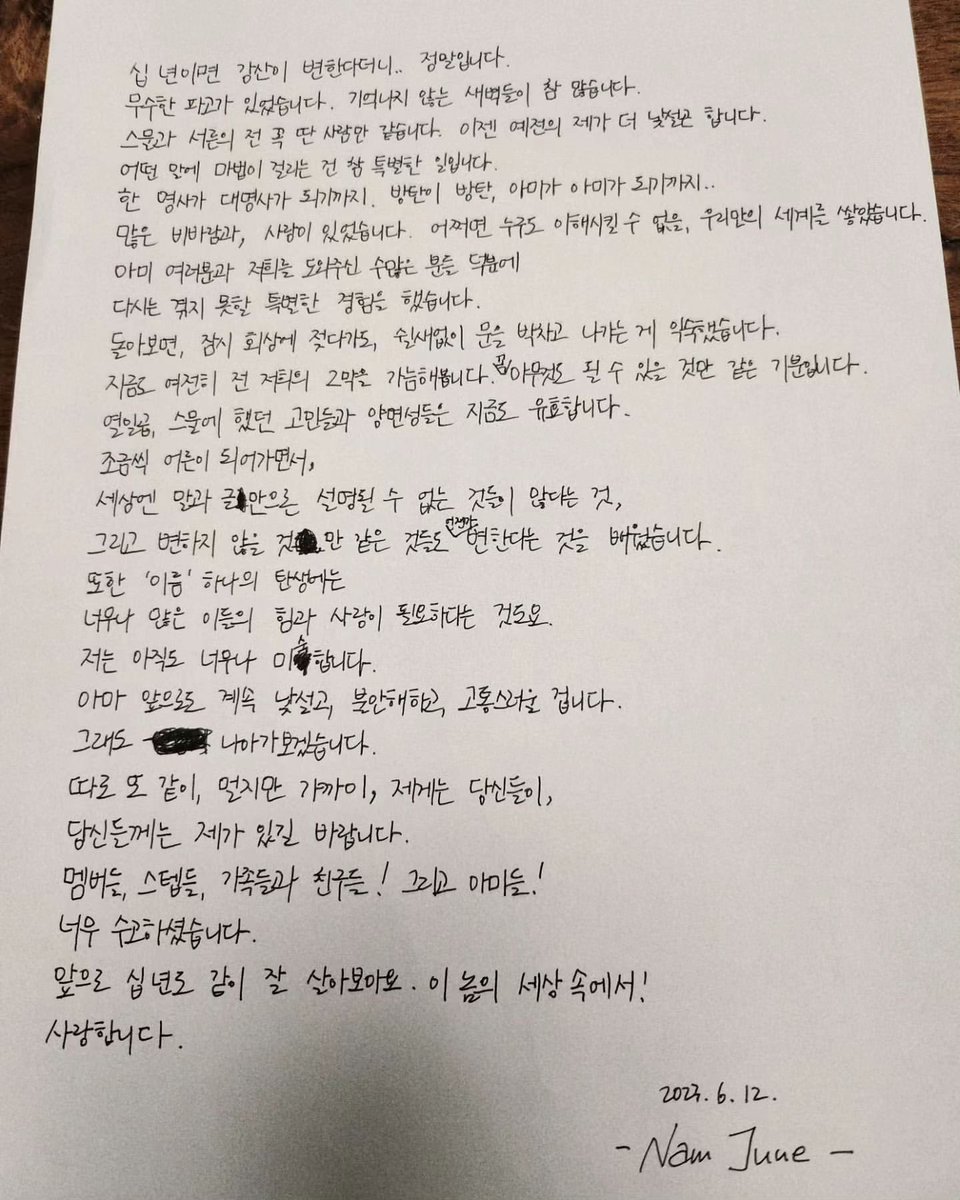 십 년이면 강산이 변한다더니.. 정말입니다.
무수한 파고가 있었습니다. 기억나지 않는 새벽들이 참 많습니다.
스물과 서른의 전 꼭 딴 사람만 같습니다. 이젠 예전의 제가 더 낯설곤 합니다.
어떤 말에 마법이 걸리는 건 참 특별한 일입니다.
한 명사가 대명사가 되기까지. 방탄이 방탄, 아미가 아미가 되기까지..
많은 비바람과, 사랑이 있었습니다. 어쩌면 누구도 이해시킬 수 없을, 우리만의 세계를 쌓았습니다.
아미 여러분과 저희를 도와주신 수많은 분들 덕분에
다시는 겪지 못할 특별한 경험을 했습니다.
돌아보면, 잠시 회상에 젖다가도, 쉴새없이 문을 박차고 나가는 게 익숙했습니다.
지금도 여전히 전 저희의 2막을 가늠해봅니다. 꼭 아무것도 될 수 있을 것만 같은 기분입니다.
열일곱, 스물에 했던 고민들과 양면성들은 지금도 유효합니다.
조금씩 어른이 되어가면서,
세상엔 말과 글만으로 설명될 수 없는 것들이 많다는 것,
그리고 변하지 않을 것만 같은 것들도 언젠가 변한다는 것을 배웠습니다.
또한 '이름' 하나의 탄생에는
너무나 많은 이들의 힘과 사랑이 필요하다는 것도요.
저는 아직도 너무나 미숙합니다.
아마 앞으로도 계속 낯설고, 불안해하고, 고통스러울 겁니다.
그래도 나아가보겠습니다.
따로 또 같이, 멀지만 가까이, 제게는 당신들이,
당신들께는 제가 있길 바랍니다.
멤버들, 스텝들, 가족들과 친구들! 그리고 아미들!
너무 수고하셨습니다.
앞으로 십 년도 같이 잘 살아보아요. 이 놈의 세상 속에서!
사랑합니다.
2023. 6. 12.
- Nam June -